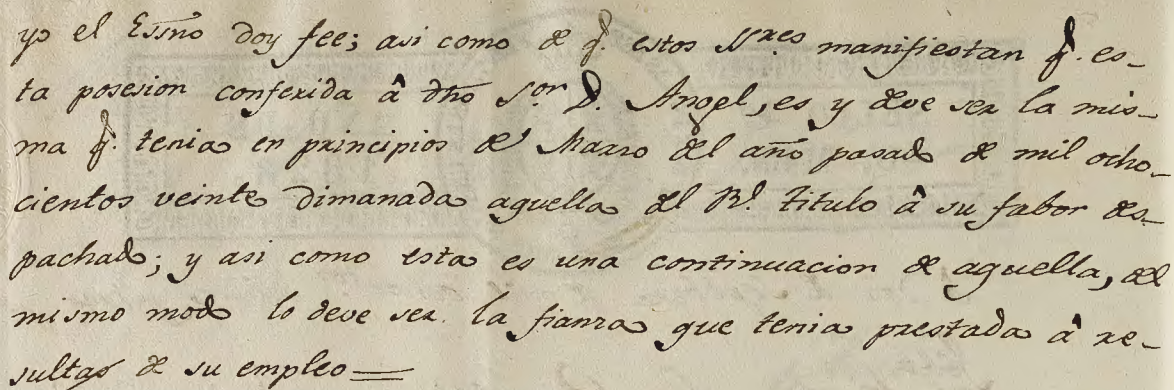 yo el Essno doy fee; asi como de q. estos Sres manifiestan q. es-
ta posesion conferida â dho Sor D. Angel, es y deve ser la mis-
ma q. tenia en principios de Marzo del año pasado de mil ocho-
cientos veinte dimanada aquella del Rl. titulo â su fabor des-
pachado; y asi como esta es una continuacion de aquella, del
mismo modo lo deve ser la fianza que tenia prestada â re-
sultas de su empleo=